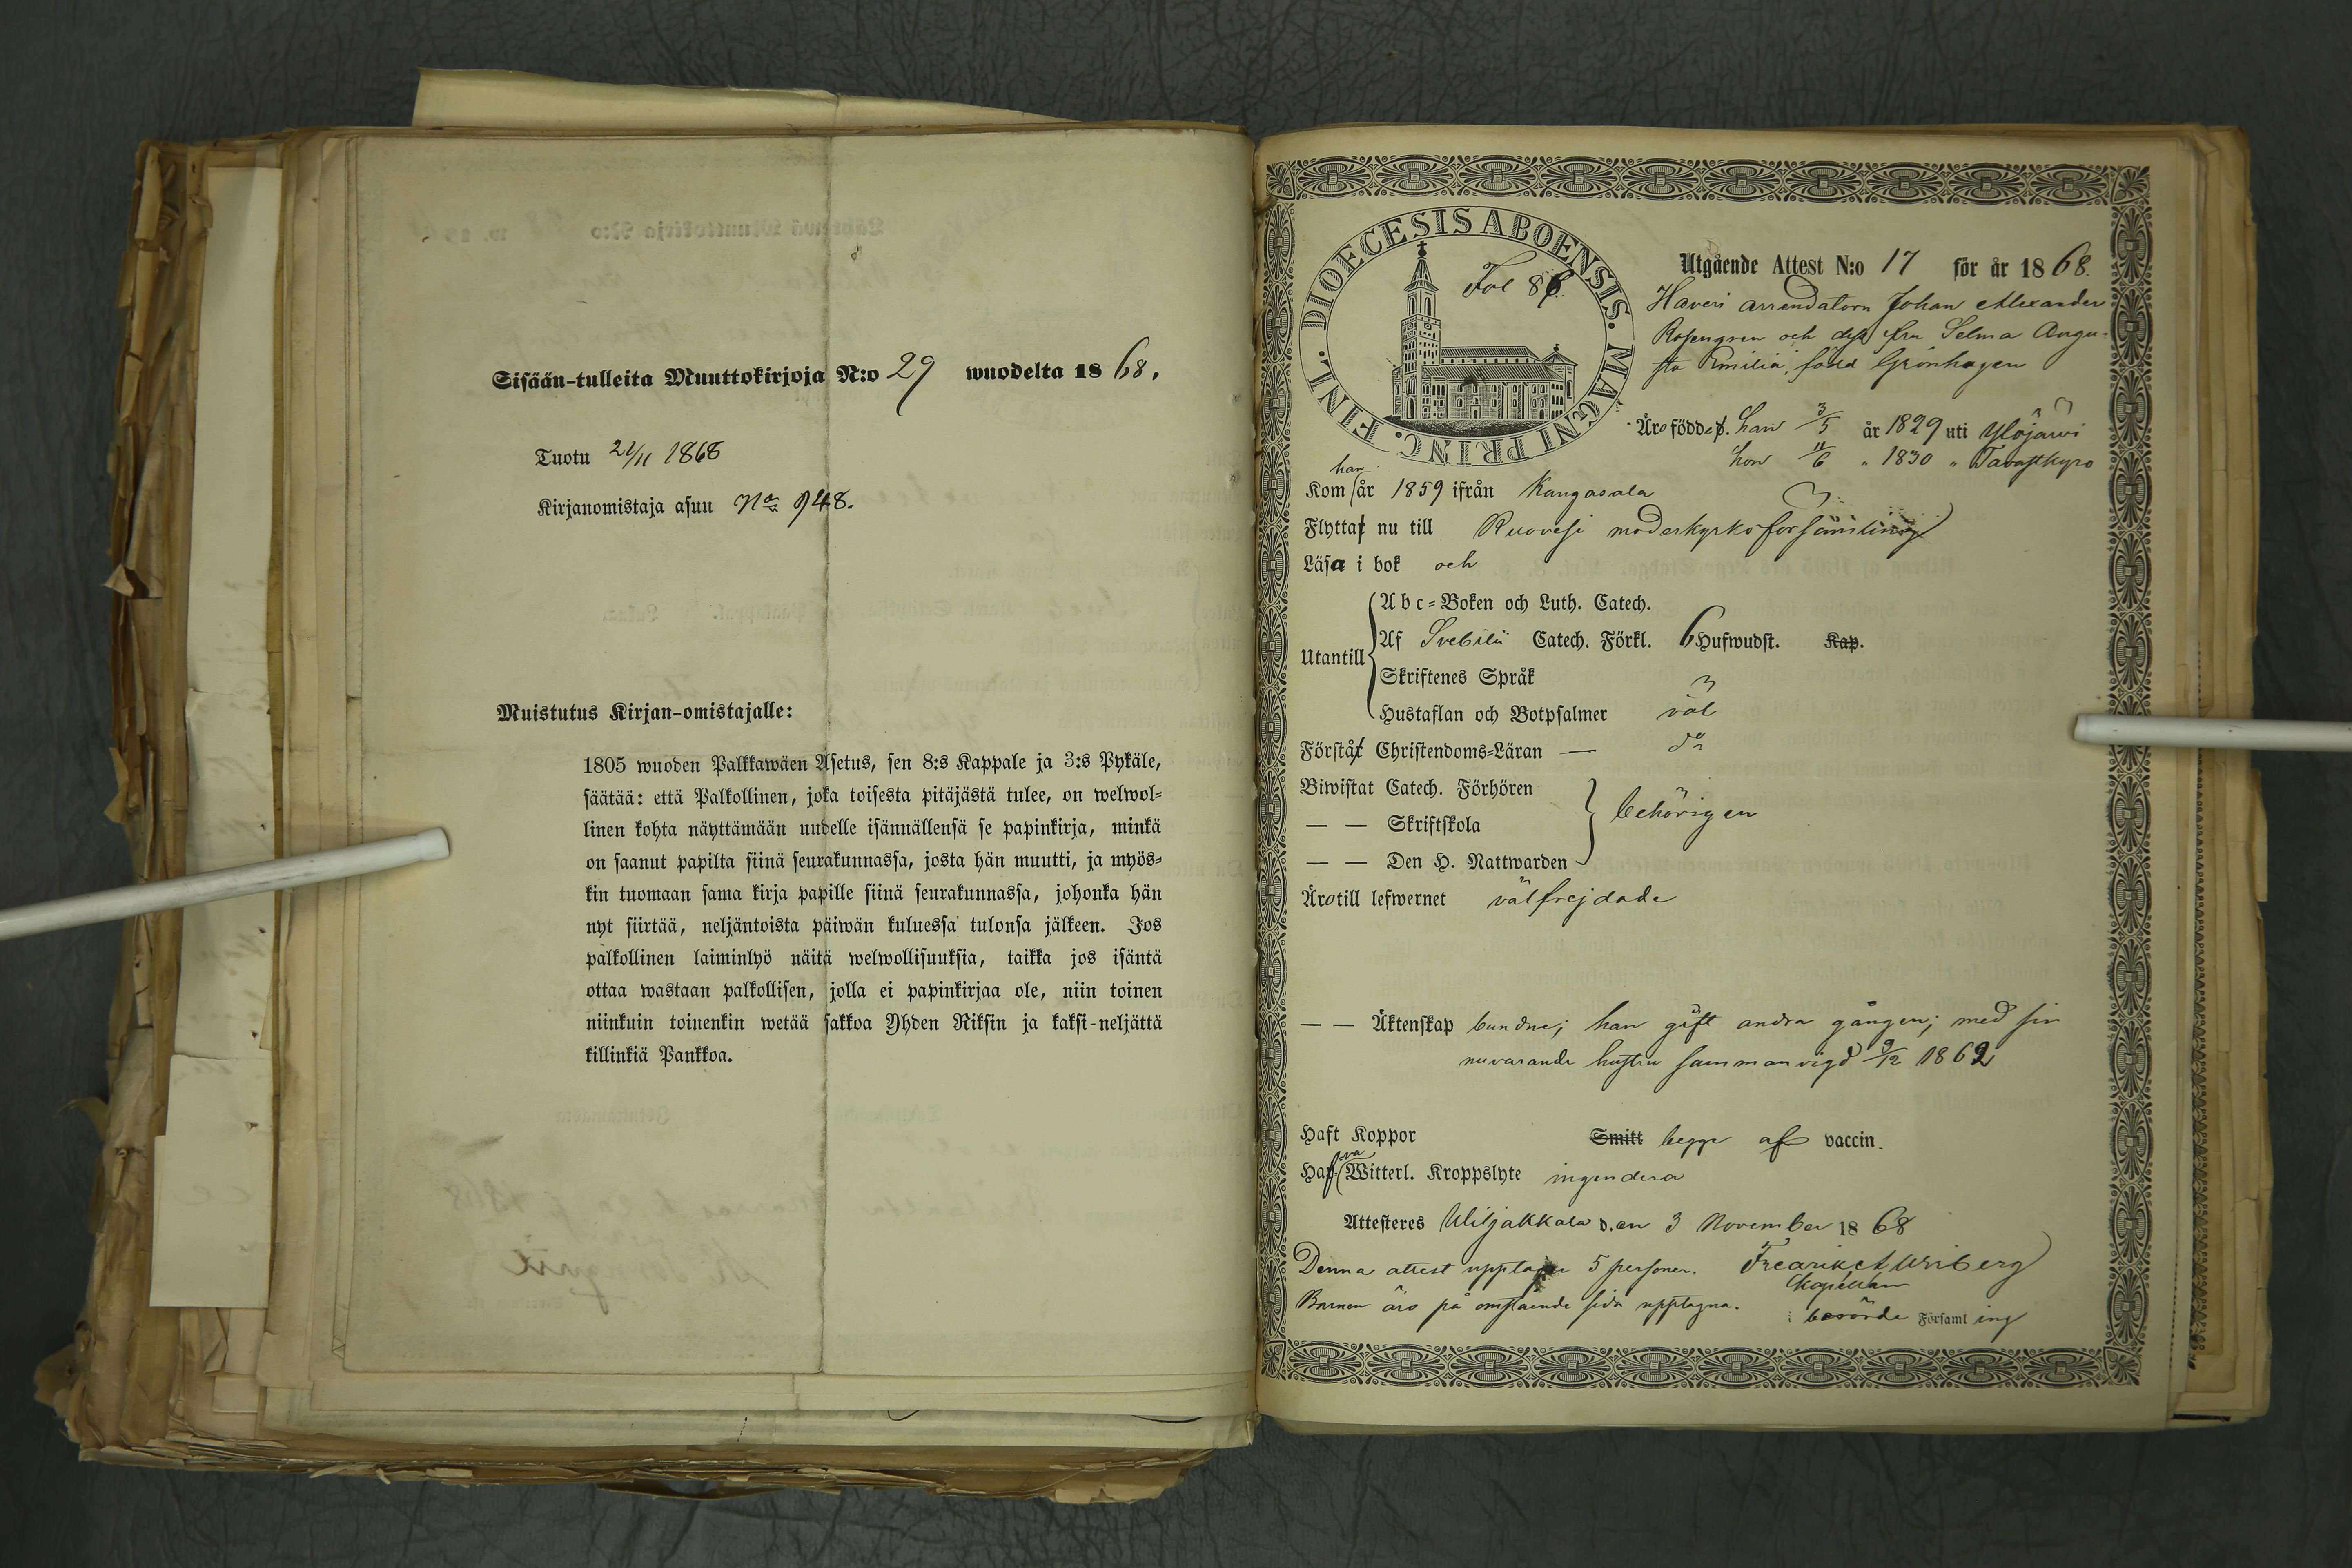 Sisään-tulleita Muuttokirjoja N:o 29 wuodelta 1868.
Tuotu 22/11 1868
Kirjanomistaja asuu No 948.
Muistutus Kirjan-omistajalle:
1805 wuoden Palkkawäen Asetus, sen 8:s Kappale ja 3:s Pykäle,
säätää: että Palkollinen, joka toisesta pitäjästä tulee, on welwol-
linen kohta näyttämään uudelle isännällensä se papinkirja, minkä
on saanut papilta siinä seurakunnassa, josta hän muutti, ja myös-
kin tuomaan sama kirja papille siinä seurakunnassa, johonka hän
nyt siirtää, neljäntoista päiwän kuluessa tulonsa jälkeen. Jos
palkollinen laiminlyö näitä welwollisuuksia, taikka jos isäntä
ottaa wastaan palkollisen, jolla ei papinkirjaa ole, niin toinen
niinkuin toinenkin wetää sakkoa Yhden Riksin ja kaksi-neljättä
killinkiä Pankkoa.
DIOECESIS ABOENSIS. MAGNI PRINC. FINL.
Fol 86.
Utgående Attest N:o 17 för år 1868.
Haveri arrendatorn Johan Alexander
Rosengren och dess fru Selma Augu-
sta Emilia, född Grönhagen
Äro födde. han 3/5 år 1829 uti Ylöjärvi
hon 11/6 " 1830 " Tavastkyro
han
Kom år 1859 ifrån Kangasala
Flytta nu till Ruovesi moderkyrkoförsamling
Läsa i bok och
Utantill
Abc-Boken och Luth. Catech.
Af Svebilii Catech. Förkl. 6 Hufwudst. Kap.
Skriftenes Språk
Hustaflan och Botpsalmer väl
Förstå Christendoms-Läran — do
Biwistat Catech. Förhören
— — Skriftskola behörigen
— — Den H. Nattwarden
Äro till lefwernet välfrejdade
— — Äktenskap bundne; han gift andra gången; med sin
nuvarande hustru sammanvigd 9/12 1862
Haft Koppor Smitt begge af vaccin.
Hafva Witterl. Kroppslyte ingendera
Attesteres Wiljakkala d.en 3 November 1868
Denna attest upptager 5 personer. Fredrik
Kapellan
Barnen äro på omstående sida upptagna.
i berörde Församling